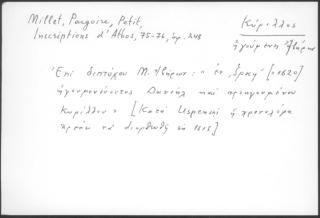 Millet, Pargoire, Petit,
Inscriptions d'Athos, 75-76, ἀρ. 248
Κύριλλος
ἡγούμενος Ἰβήρων
Ἐπὶ διπτύχου Μ. Ἰβήρων: "ἐν ἔτει [=1620]
ἡγουμενεύοντος Δανιὴλ καὶ προηγουμένου
Κυρίλλου" [Κατὰ Uspenskij ἡ χρονολογία
πρέπει νὰ διορθωθῇ σὲ 1615]